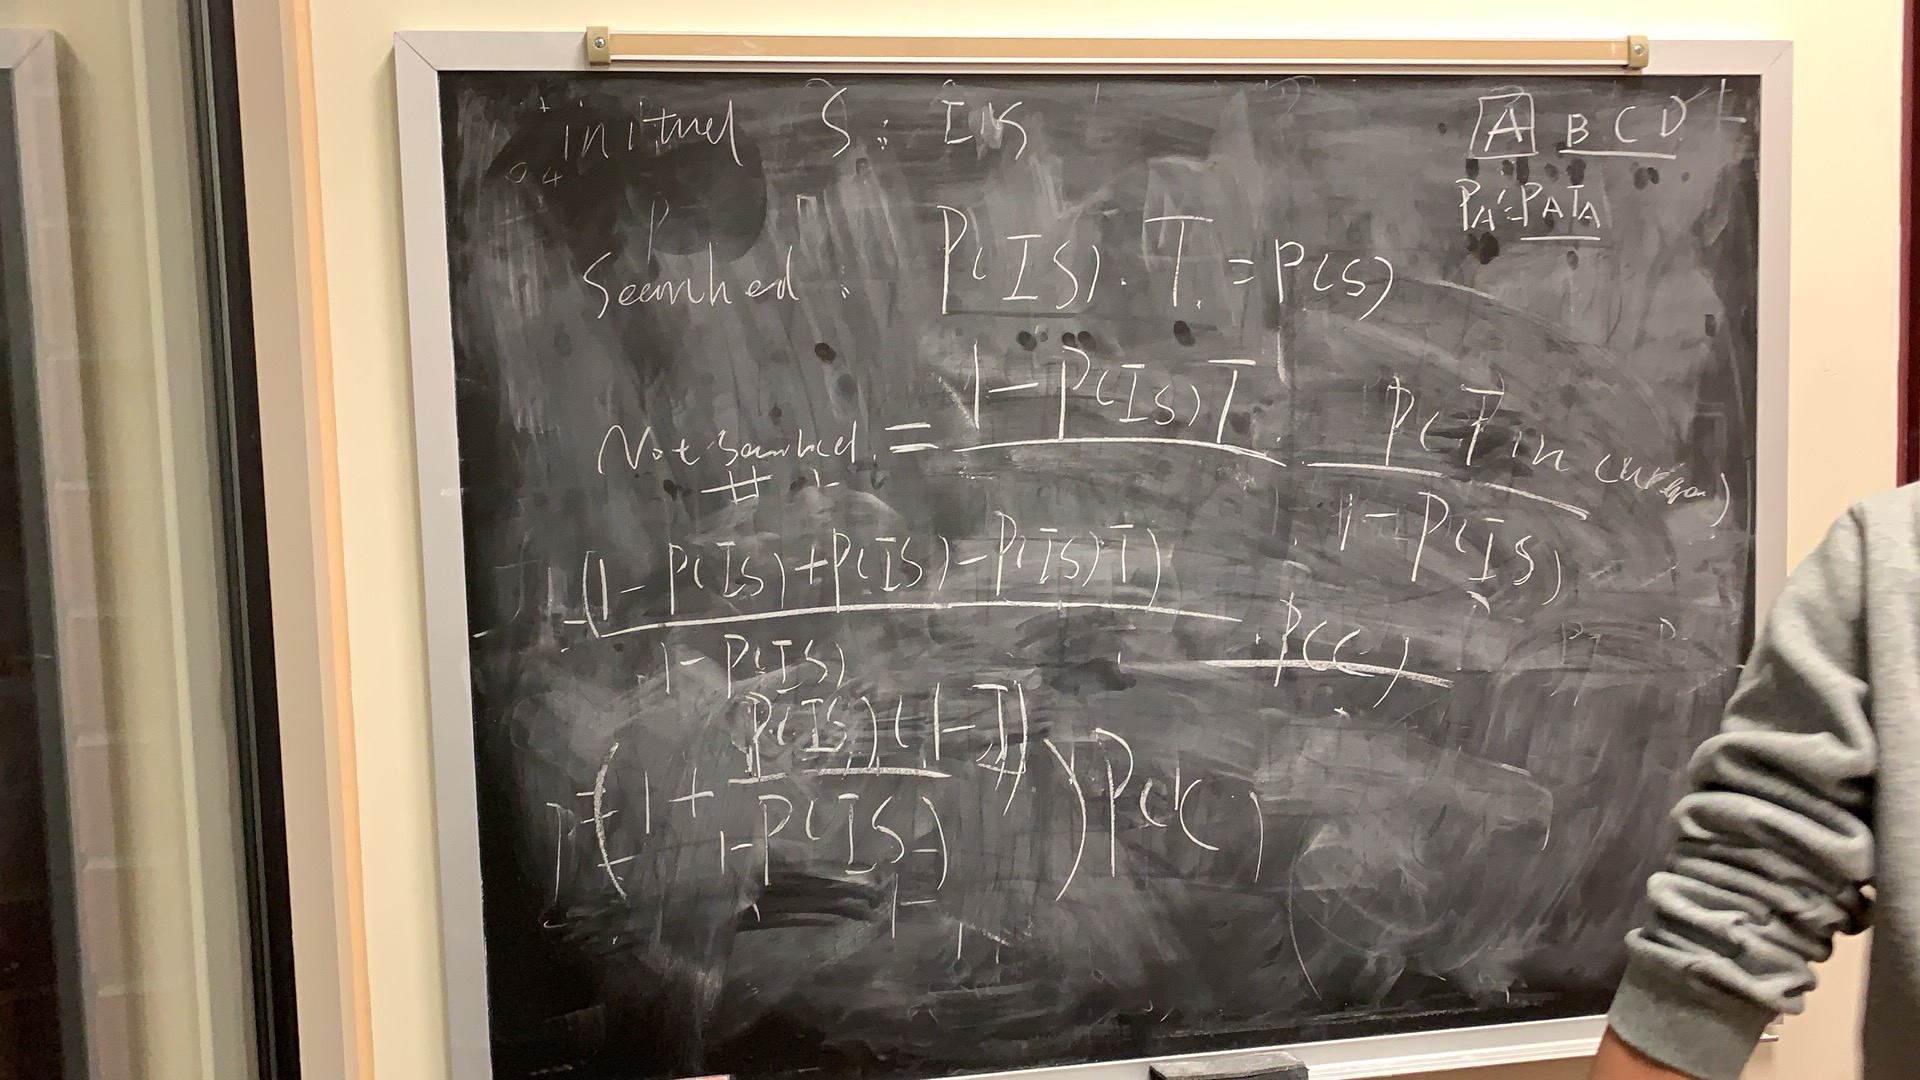 initial S: IS
A B C D
PA'=PATA
Searched: P(IS) · T = P(S)
Not searched = 1-P(IS)T · P(T in
1-P(IS)
(1-P(IS)+P(IS)-P(IS)T)
1-P(IS)
· P(C)
P(IS)(1-T)
=(1+ ) P(C)
1-P(IS)